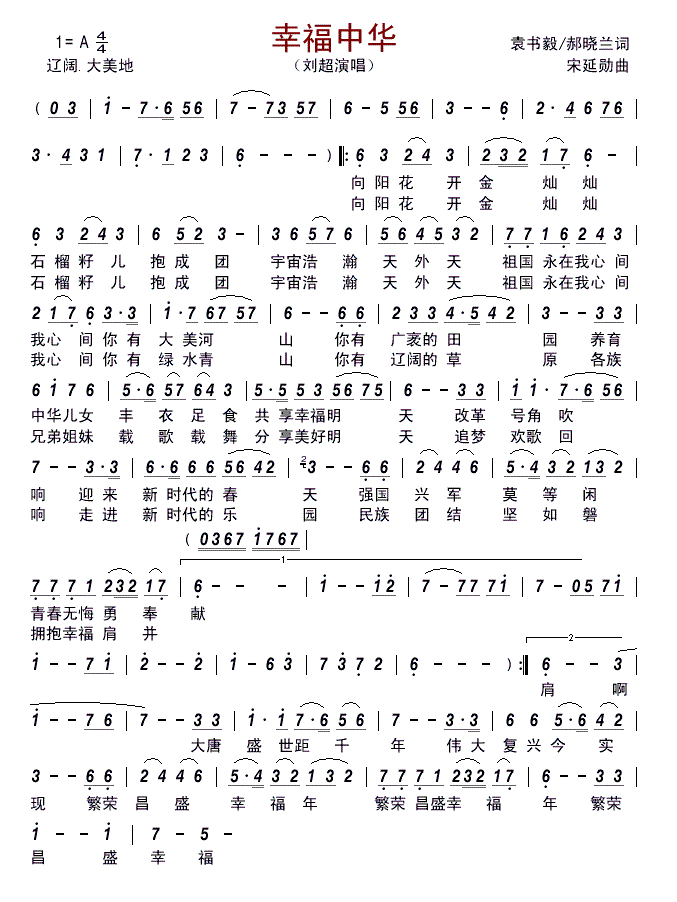 幸福中华
1= A 4/4
袁书毅/郝晓兰词
辽阔.大美地
（刘超演唱）
宋延勋曲
( 0 3 | 1 - 7·6 5 6 | 7 - 7 3 5 7 | 6 - 5 5 6 | 3 - - 6 | 2· 4 6 7 6 |
3· 4 3 1 | 7· 1 2 3 | 6 - - ) ‖: 6 3 2 4 3 | 2 3 2 1 7 6 - |
向 阳 花 开 金 灿 灿
向 阳 花 开 金 灿 灿
6 3 2 4 3 | 6 5 2 3 - | 3 6 5 7 6 | 5 6 4 5 3 2 | 7 7 1 6 2 4 3 |
石 榴 籽 儿 抱 成 团 宇宙浩 瀚 天 外 天 祖国 永在我心 间
石 榴 籽 儿 抱 成 团 宇宙浩 瀚 天 外 天 祖国 永在我心 间
2 1 7 6 3·3 | 1·7 6 7 5 7 | 6 - - 6 6 | 2 3 3 4·5 4 2 | 3 - - 5 5 |
我心 间 你 有 大 美河 山 你有 广袤的 田 园 养育
我心 间 你 有 绿 水青 山 你有 辽阔的 草 原 各族
6 1 7 6 | 5·6 5 7 6 4 3 | 5·5 5 3 5 6 7 5 | 6 - - 3 3 | 1 1· 7 6 5 |
中华儿女 丰 衣 足 食 共 享幸福明 天 改革 号角 吹
兄弟姐妹 载 歌 载 舞 分 享美好明 天 追梦 欢歌 回
7 - - 3·3 | 6·6 6 6 5 6 4 2 | 2 3 - - 6 6 | 2 4 4 6 | 5·4 3 2 1 3 2 |
响 迎 来 新 时代的 春 天 强国 兴 军 莫 等 闲
响 走 进 新 时代的 乐 园 民族 团 结 坚 如 磐
( 0 3 6 7 1 7 6 7 |
1
7 7 7 1 2 3 2 1 7 | 6 - - - | 1 - 1 1 2 | 7 - 7 7 1 | 7 - 0 5 7 1 |
青春无悔 勇 奉 献
拥抱幸福 肩 并
2
1 - - 7 1 | 2 - - 2 | 1 - 6 3 | 7 3 7 2 | 6 - - - ) :‖ 6 - - 3 |
肩 啊
1 - - 7 6 | 7 - - 3 3 | 1·1 1 7·6 5 6 | 7 - - 3·3 | 6 6 5·6 4 2 |
大唐 盛 世距 千 年 伟 大 复 兴 今 实
3 - - 6 6 | 2 4 4 6 | 5·4 3 2 1 3 2 | 7 7 7 1 2 3 2 1 7 | 6 - - 6 6 |
现 繁荣 昌 盛 幸 福 年 繁荣 昌盛幸 福 年 繁荣
1 - - 1 | 7 - 5 - |
昌 盛 幸 福